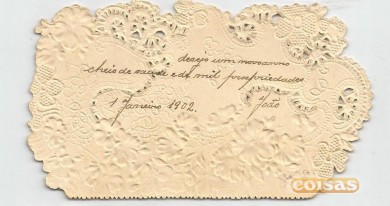 desejo um novo anno
cheio de saude e de mil prosperidades
1 Janeiro 1902.
João
coisas